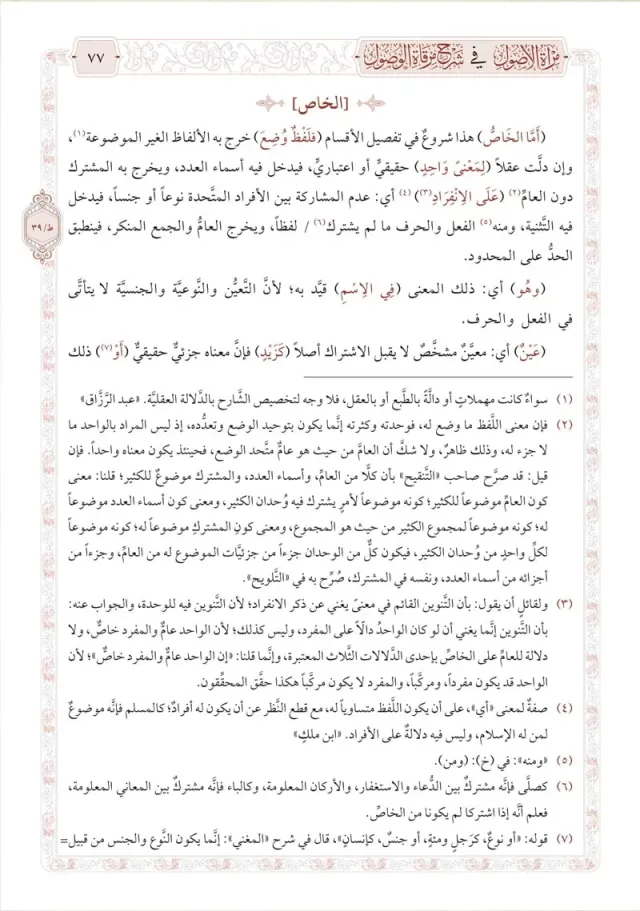 مرآة الأصول في شرح مرقاة الوصول
٧٧
[الخاص]
(أَمَّا الخَاصُّ) هذا شروعٌ في تفصيل الأقسام (فَلَفْظٌ وُضِعَ) خرج به الألفاظ الغير الموضوعة(١)،
وإن دلَّت عقلاً (لِمَعْنىً وَاحِدٍ) حقيقيٍّ أو اعتباريٍّ، فيدخل فيه أسماء العدد، ويخرج به المشترك
دون العامِّ(٢) (عَلَى الِانْفِرَادِ(٣))(٤) أي: عدم المشاركة بين الأفراد المتَّحدة نوعاً أو جنساً، فيدخل
فيه التَّثنية، ومنه(٥) الفعل والحرف ما لم يشترك(٦) / لفظاً، ويخرج العامُّ والجمع المنكر، فينطبق
ط/٣٩
الحدُّ على المحدود.
(وهُو) أي: ذلك المعنى (فِي الِاسْمِ) قيَّد به؛ لأنَّ التَّعيُّن والنَّوعيَّة والجنسيَّة لا يتأتَّى
في الفعل والحرف.
(عَيْنٌ) أي: معيَّنٌ مشخَّصٌ لا يقبل الاشتراك أصلاً (كَزَيْدٍ) فإنَّ معناه جزئيٌّ حقيقيٌّ (أَوْ(٧)) ذلك
(١) سواءٌ كانت مهملاتٍ أو دالَّةً بالطَّبع أو بالعقل، فلا وجه لتخصيص الشَّارح بالدَّلالة العقليَّة. «عبد الرَّزَّاق»
(٢) فإن معنى اللَّفظ ما وضع له، فوحدته وكثرته إنَّما يكون بتوحيد الوضع وتعدُّده، إذ ليس المراد بالواحد ما
لا جزء له، وذلك ظاهرٌ، ولا شكَّ أن العامَّ من حيث هو عامٌّ متَّحد الوضع، فحينئذ يكون معناه واحداً. فإن
قيل: قد صرَّح صاحب «التَّنقيح» بأن كلًّا من العامِّ، وأسماء العدد، والمشترك موضوعٌ للكثير؛ قلنا: معنى
كون العامِّ موضوعاً للكثير؛ كونه موضوعاً لأمرٍ يشترك فيه وُحدان الكثير، ومعنى كون أسماء العدد موضوعاً
له؛ كونه موضوعاً لمجموع الكثير من حيث هو المجموع، ومعنى كون المشتركِ موضوعاً له؛ كونه موضوعاً
لكلِّ واحدٍ من وُحدان الكثير، فيكون كلٌّ من الوحدان جزءاً من جزئيَّات الموضوع له من العامِّ، وجزءاً من
أجزائه من أسماء العدد، ونفسه في المشترك، صُرِّح به في «التَّلويح».
(٣) ولقائلٍ أن يقول: بأن التَّنوين القائم في معنىً يغني عن ذكر الانفراد؛ لأن التَّنوين فيه للوحدة، والجواب عنه:
بأن التَّنوين إنَّما يغني أن لو كان الواحدُ دالّاً على المفرد، وليس كذلك؛ لأن الواحد عامٌّ والمفرد خاصٌّ، ولا
دلالة للعامِّ على الخاصِّ بإحدى الدَّلالات الثَّلاث المعتبرة، وإنَّما قلنا: «إن الواحد عامٌّ والمفرد خاصٌّ»؛ لأن
الواحد قد يكون مفرداً، ومركَّباً، والمفرد لا يكون مركَّباً هكذا حقَّق المحقِّقون.
(٤) صفةٌ لمعنى «أي»، على أن يكون اللَّفظ متساوياً له، مع قطع النَّظر عن أن يكون له أفرادٌ؛ كالمسلم فإنَّه موضوعٌ
لمن له الإسلام، وليس فيه دلالةٌ على الأفراد. «ابن ملكٍ»
(٥) «ومنه»: في (خ): (ومن).
(٦) كصلَّى فإنَّه مشتركٌ بين الدُّعاء والاستغفار، والأركان المعلومة، وكالباء فإنَّه مشتركٌ بين المعاني المعلومة،
فعلم أنَّه إذا اشتركا لم يكونا من الخاصِّ.
(٧) قوله: «أو نوعٌ، كرَجلٍ ومئةٍ، أو جنسٌ، كإنسانٍ»، قال في شرح «المغني»: إنَّما يكون النَّوع والجنس من قبيل=